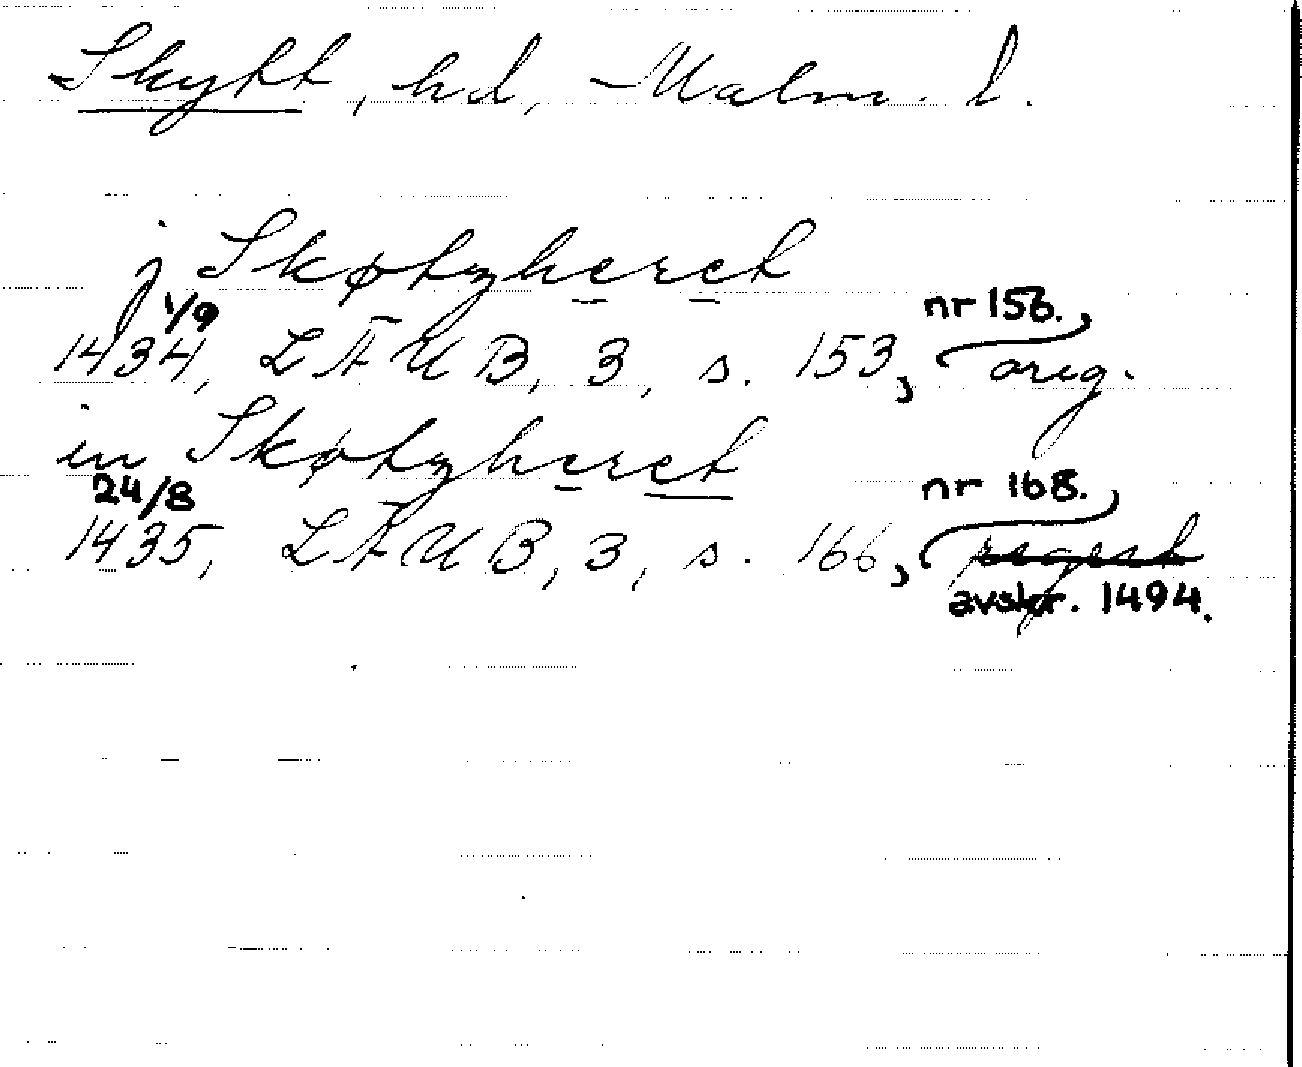 Skytt, hd, Malm. l.
j Skøtzheret
1434, 1/9 LÄUB, 3, s. 153, nr 156. orig.
in Skøtzheret
1435, 24/8 LÄUB, 3, s. 166, nr 168. regest
avskr. 1494.